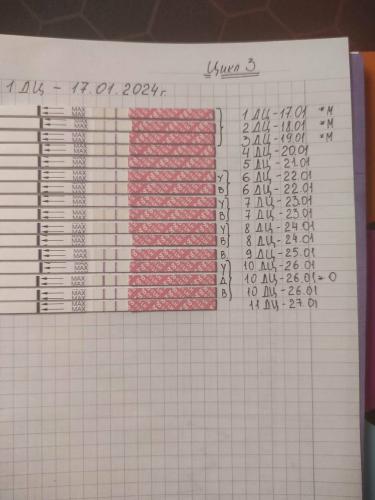 Цикл 3
1 ДЦ - 17.01.2024г.
MAX 1 ДЦ - 17.01 *М
MAX 2 ДЦ - 18.01 *М
MAX 3 ДЦ - 19.01 *М
MAX 4 ДЦ - 20.01
MAX 5 ДЦ - 21.01
MAX У 6 ДЦ - 22.01
MAX В 6 ДЦ - 22.01
MAX У 7 ДЦ - 23.01
MAX В 7 ДЦ - 23.01
MAX У 8 ДЦ - 24.01
MAX В 8 ДЦ - 24.01
MAX В 9 ДЦ - 25.01
MAX У 10 ДЦ - 26.01
MAX Д 10 ДЦ - 26.01 = О
MAX В 10 ДЦ - 26.01
MAX 11 ДЦ - 27.01